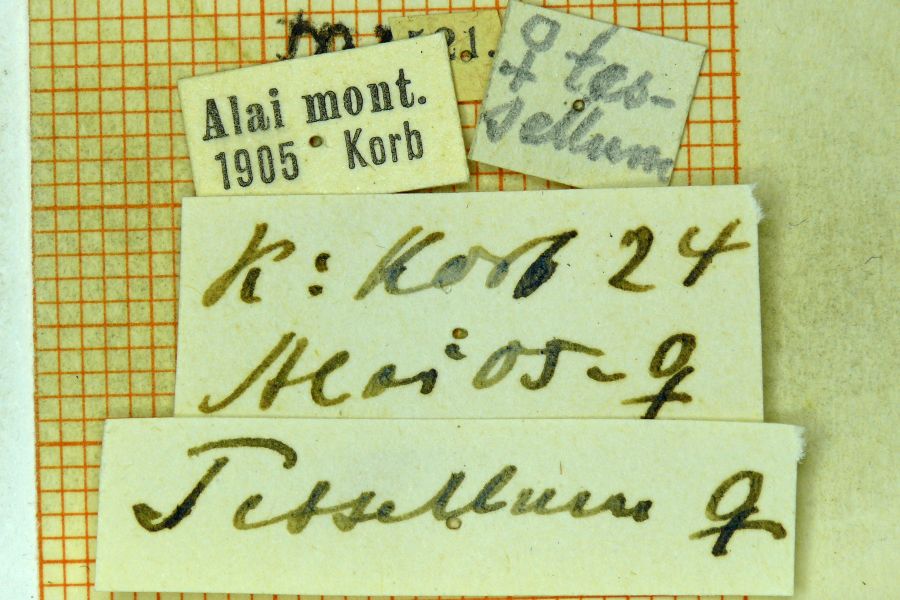 Alai mont.
1905 Korb
♀ tes-
sellum
K: Korb 24
Alai 05 - ♀
Tessellum ♀